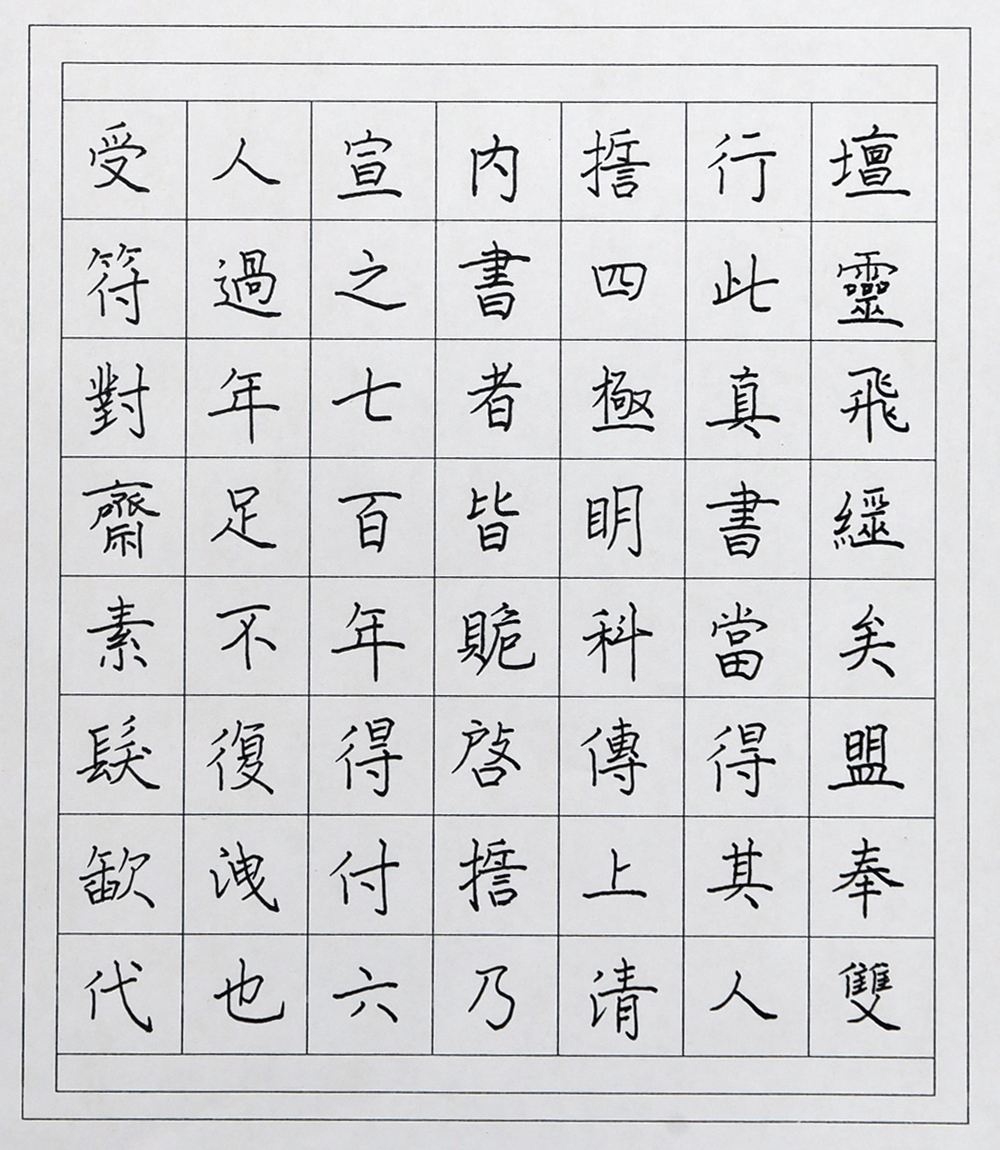 壇靈飛經矣盟奉雙
行此真書當得其人
誓四極明科傳上清
內書者皆賭啓誓乃
宣之七百年得付六
人過年足不復洩也
受符對齋素髮歃代